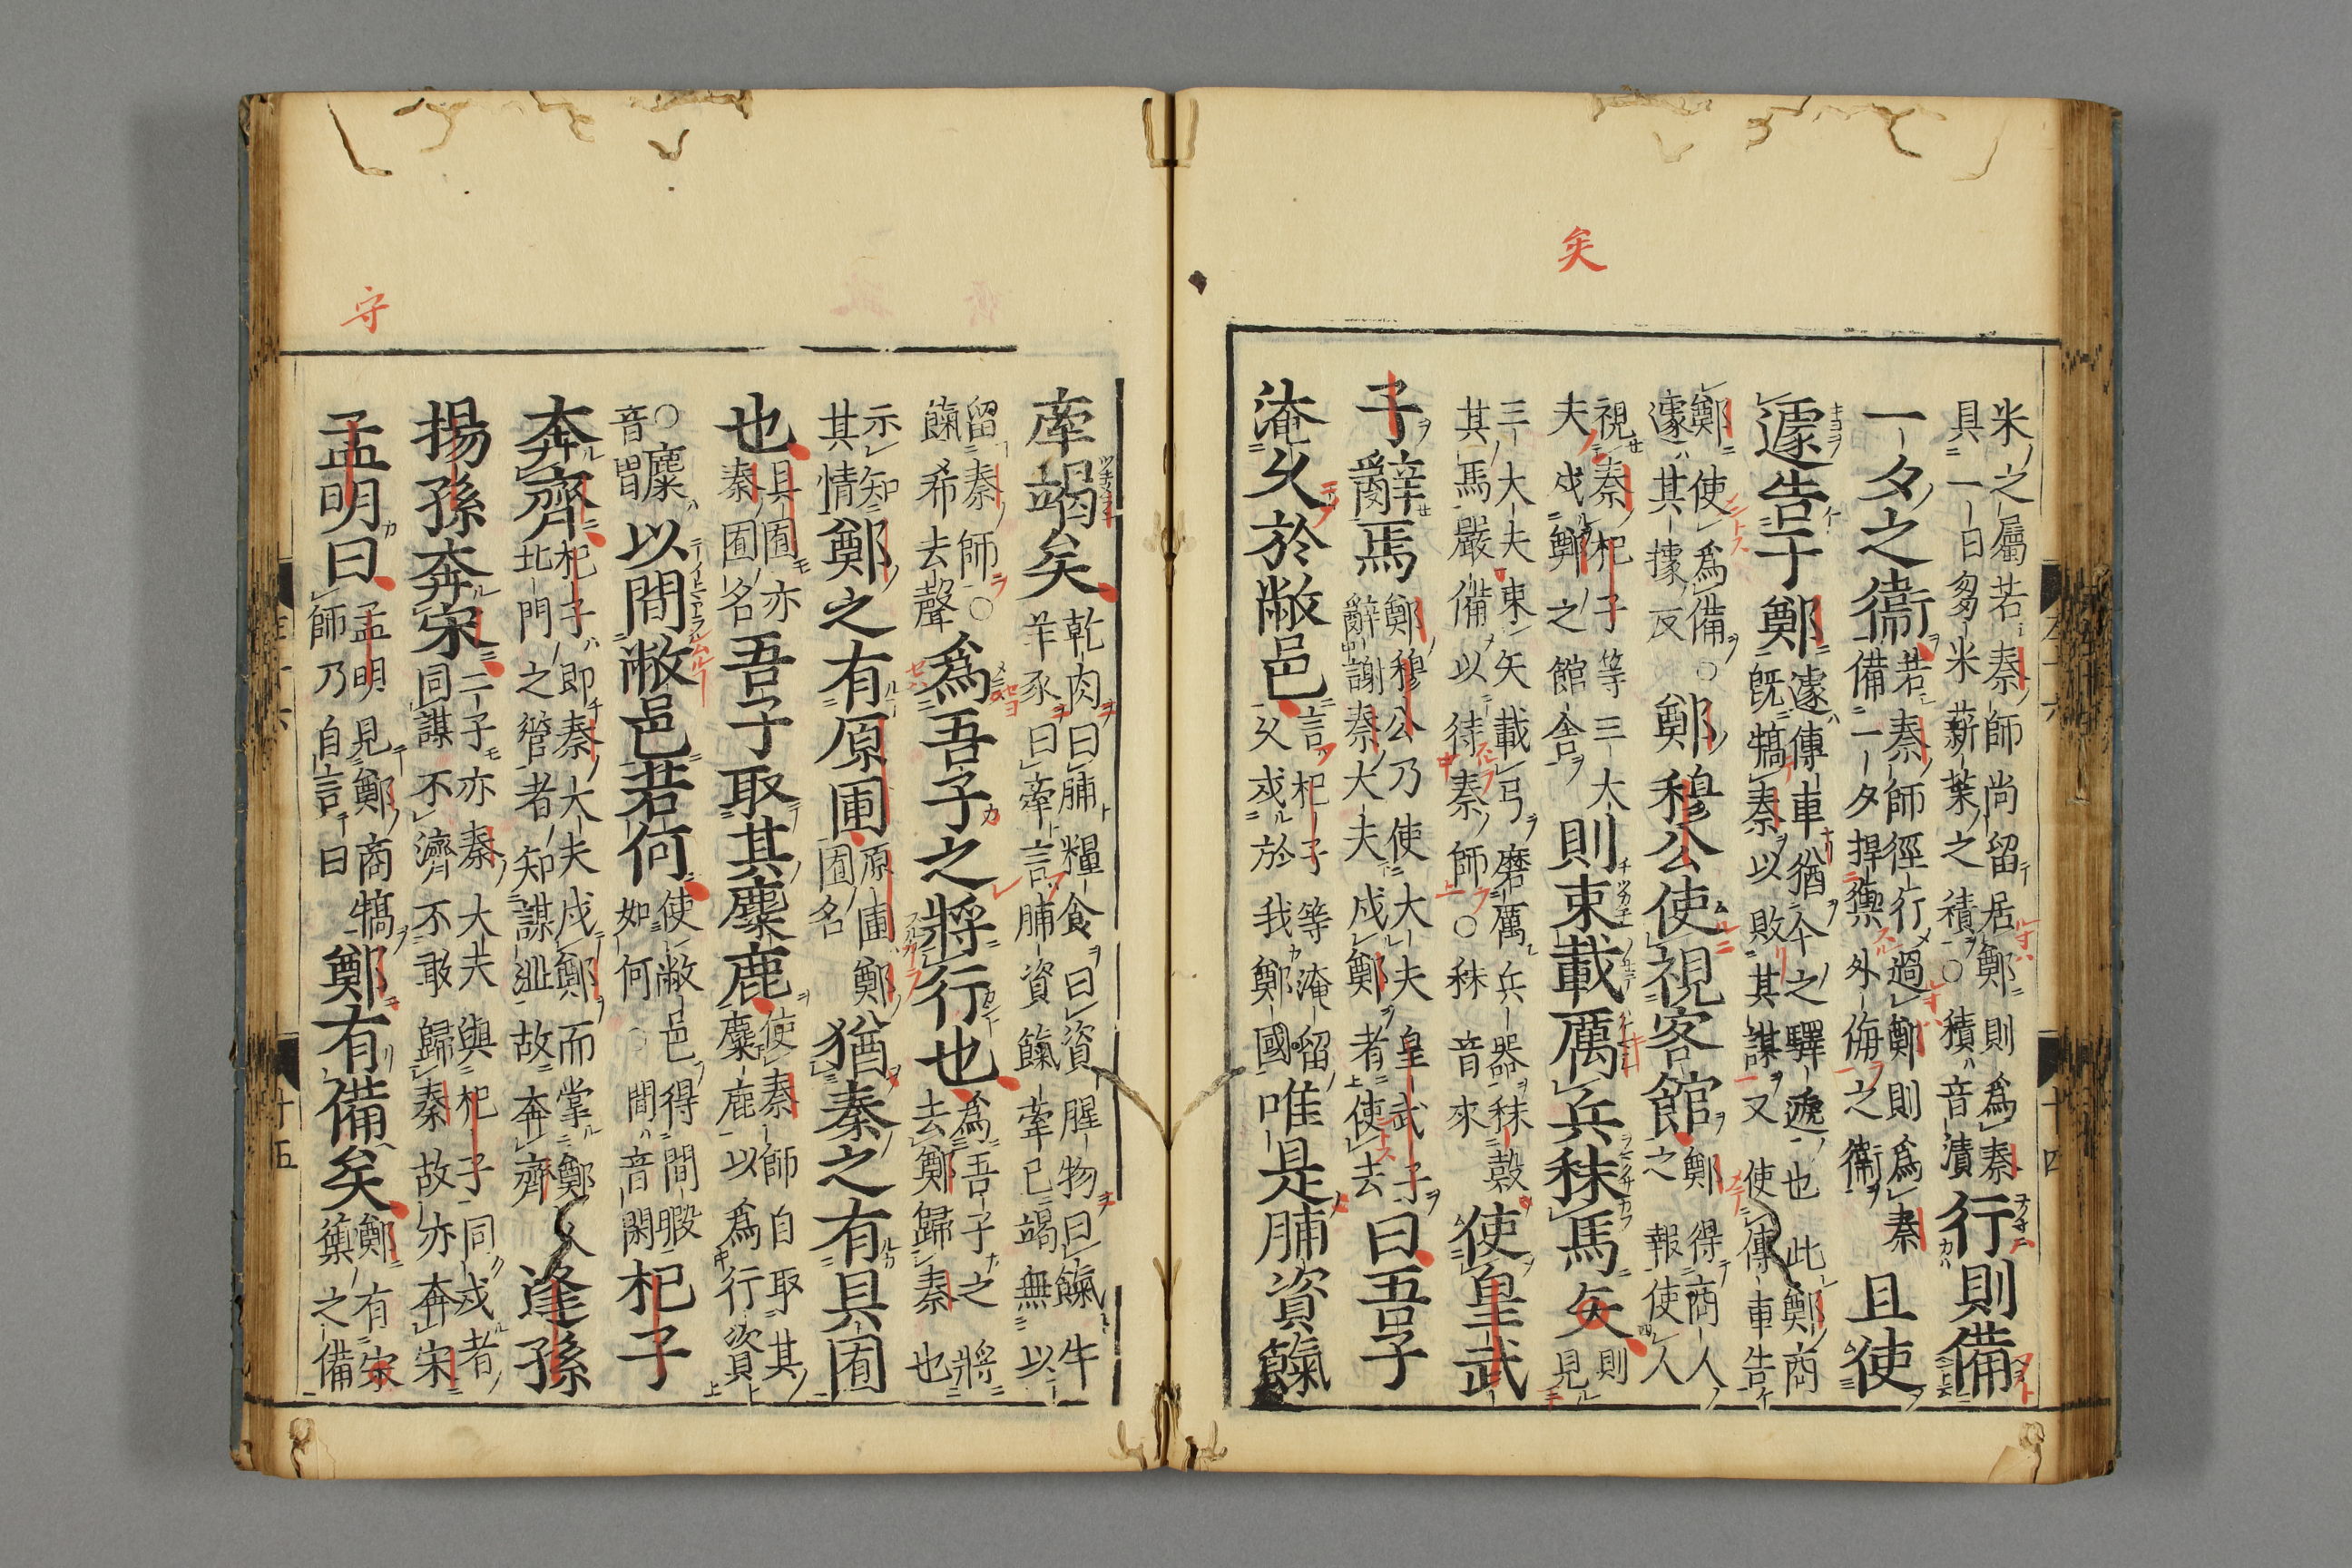 矣
米之屬若秦師尚留居鄭則爲秦
具一日芻米薪葉之積○積音漬
行則備
一夕之衞
若秦師徑行過鄭則爲秦
備一夕捍禦外侮之衞
且使
遽告于鄭
遽傳車猶今之驛遞也此鄭商
既犒秦以敗其謀又使傳車告
鄭使爲備○
遽其據反
鄭穆公使視客館
鄭得商人
之報使人
視秦杞子等三大
夫戍鄭之館舍
則束載厲兵秣馬矢
則
見
三大夫束矢載弓磨厲兵器秣穀
其馬嚴備以待秦師○秣音來
使皇武
子辭焉
鄭穆公乃使大夫皇武子
辭謝秦大夫戍鄭者使去
曰吾子
淹久於敝邑
言杞子等淹留
久戍於我鄭國
唯是脯資餼
牽竭矣
乾肉曰脯糧食曰資腥物曰餼牛
羊豕曰牽言脯資餼牽已竭無以
留秦師○
餼希去聲
爲吾子之將行也
爲吾子之將
去鄭歸秦也
示知
其情
鄭之有原圃
原圃鄭
囿名
猶秦之有具囿
也
具囿亦
秦囿名
吾子取其麋鹿
使秦師自取其
麋鹿以爲行資
○麋
音眉
以間敝邑若何
使敝邑得間暇
如何○間音閑
杞子
奔齊
杞子即秦大夫戍鄭而掌鄭人
北門之管者知謀泄故奔齊
逢孫
揚孫奔宋
二子亦秦大夫與杞子同戍者
同謀不濟不敢歸秦故亦奔宋
守
孟明曰
孟明見鄭商犒
師乃自言曰
鄭有備矣
鄭有宋
禦之備